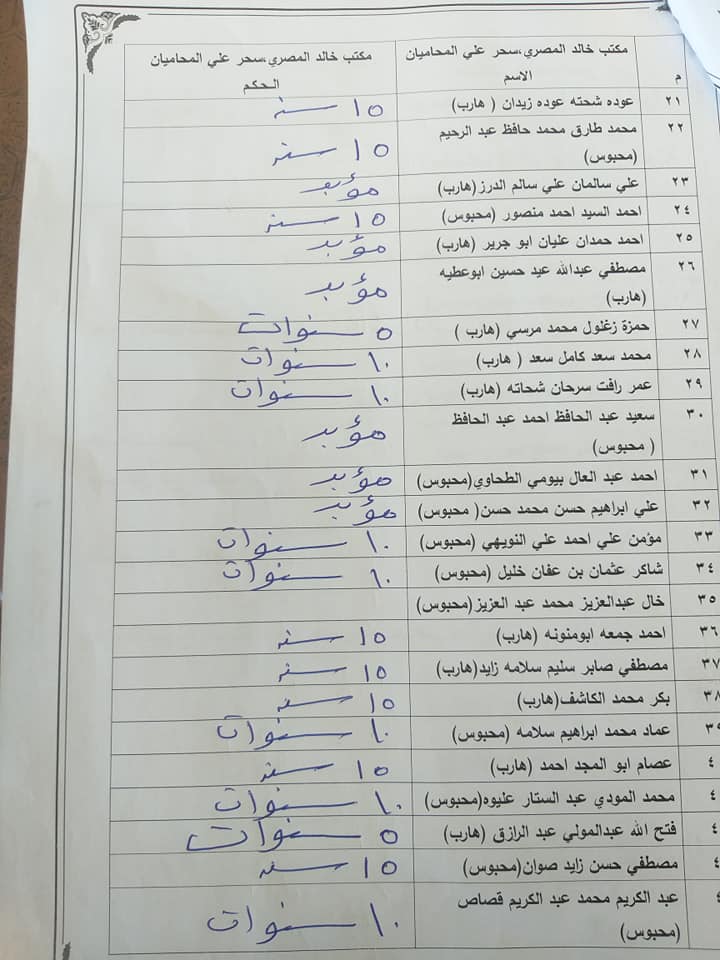 م	مكتب خالد المصري،سحر علي المحاميان	مكتب خالد المصري،سحر علي المحاميان
الاسم	الحكم
٢١	عوده شحته عوده زيدان ( هارب)	١٥ سنه
٢٢	محمد طارق محمد حافظ عبد الرحيم	١٥ سنه
(محبوس)
٢٣	علي سالمان علي سالم الدرز(هارب)	مؤبد
٢٤	احمد السيد احمد منصور (محبوس)	١٥ سنه
٢٥	احمد حمدان عليان ابو جرير (هارب)	مؤبد
٢٦	مصطفي عبدالله عيد حسين ابوعطيه	مؤبد
(هارب)
٢٧	حمزة زغلول محمد مرسي (هارب )	٥ سنوات
٢٨	محمد سعد كامل سعد ( هارب)	١٠ سنوات
٢٩	عمر رافت سرحان شحاته (هارب)	١٠ سنوات
٣٠	سعيد عبد الحافظ احمد عبد الحافظ	مؤبد
( محبوس)
٣١	احمد عبد العال بيومي الطحاوي(محبوس)	مؤبد
٣٢	علي ابراهيم حسن محمد حسن( محبوس)	مؤبد
٣٣	مؤمن علي احمد علي النويهي (محبوس)	١٠ سنوات
٣٤	شاكر عثمان بن عفان خليل (محبوس)	١٠ سنوات
٣٥	خال عبدالعزيز محمد عبد العزيز(محبوس)
٣٦	احمد جمعه ابومنونه (هارب)	١٥ سنه
٣٧	مصطفي صابر سليم سلامه زايد(هارب)	١٥ سنه
٣٨	بكر محمد الكاشف(هارب)	١٥ سنه
٣٩	عماد محمد ابراهيم سلامه (محبوس)	١٠ سنوات
٤	عصام ابو المجد احمد (هارب)	١٥ سنه
٤	محمد المودي عبد الستار عليوه(محبوس)	١٠ سنوات
٤	فتح الله عبدالمولي عبد الرازق (هارب)	٥ سنوات
٤	مصطفي حسن زايد صوان(محبوس)	١٥ سنه
٤	عبد الكريم محمد عبد الكريم قصاص	١٠ سنوات
(محبوس)